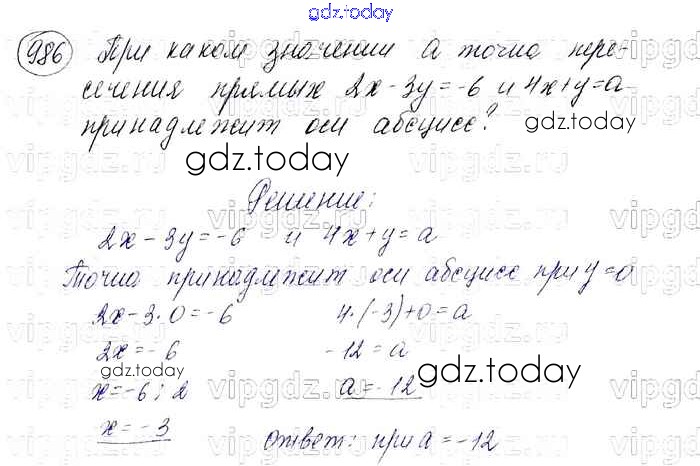 gdz.today
986 При каком значении a точка пере-
сечения прямых 2x-3y=-6 и 4x+y=a
принадлежит оси абсцисс?
gdz.today
gdz.today
Решение:
2x-3y=-6 и 4x+y=a
Точка принадлежит оси абсцисс при y=0
2x-3·0=-6 4·(-3)+0=a
2x=-6 -12=a
gdz.today
x=-6:2 a=-12
x=-3 ответ: при a=-12